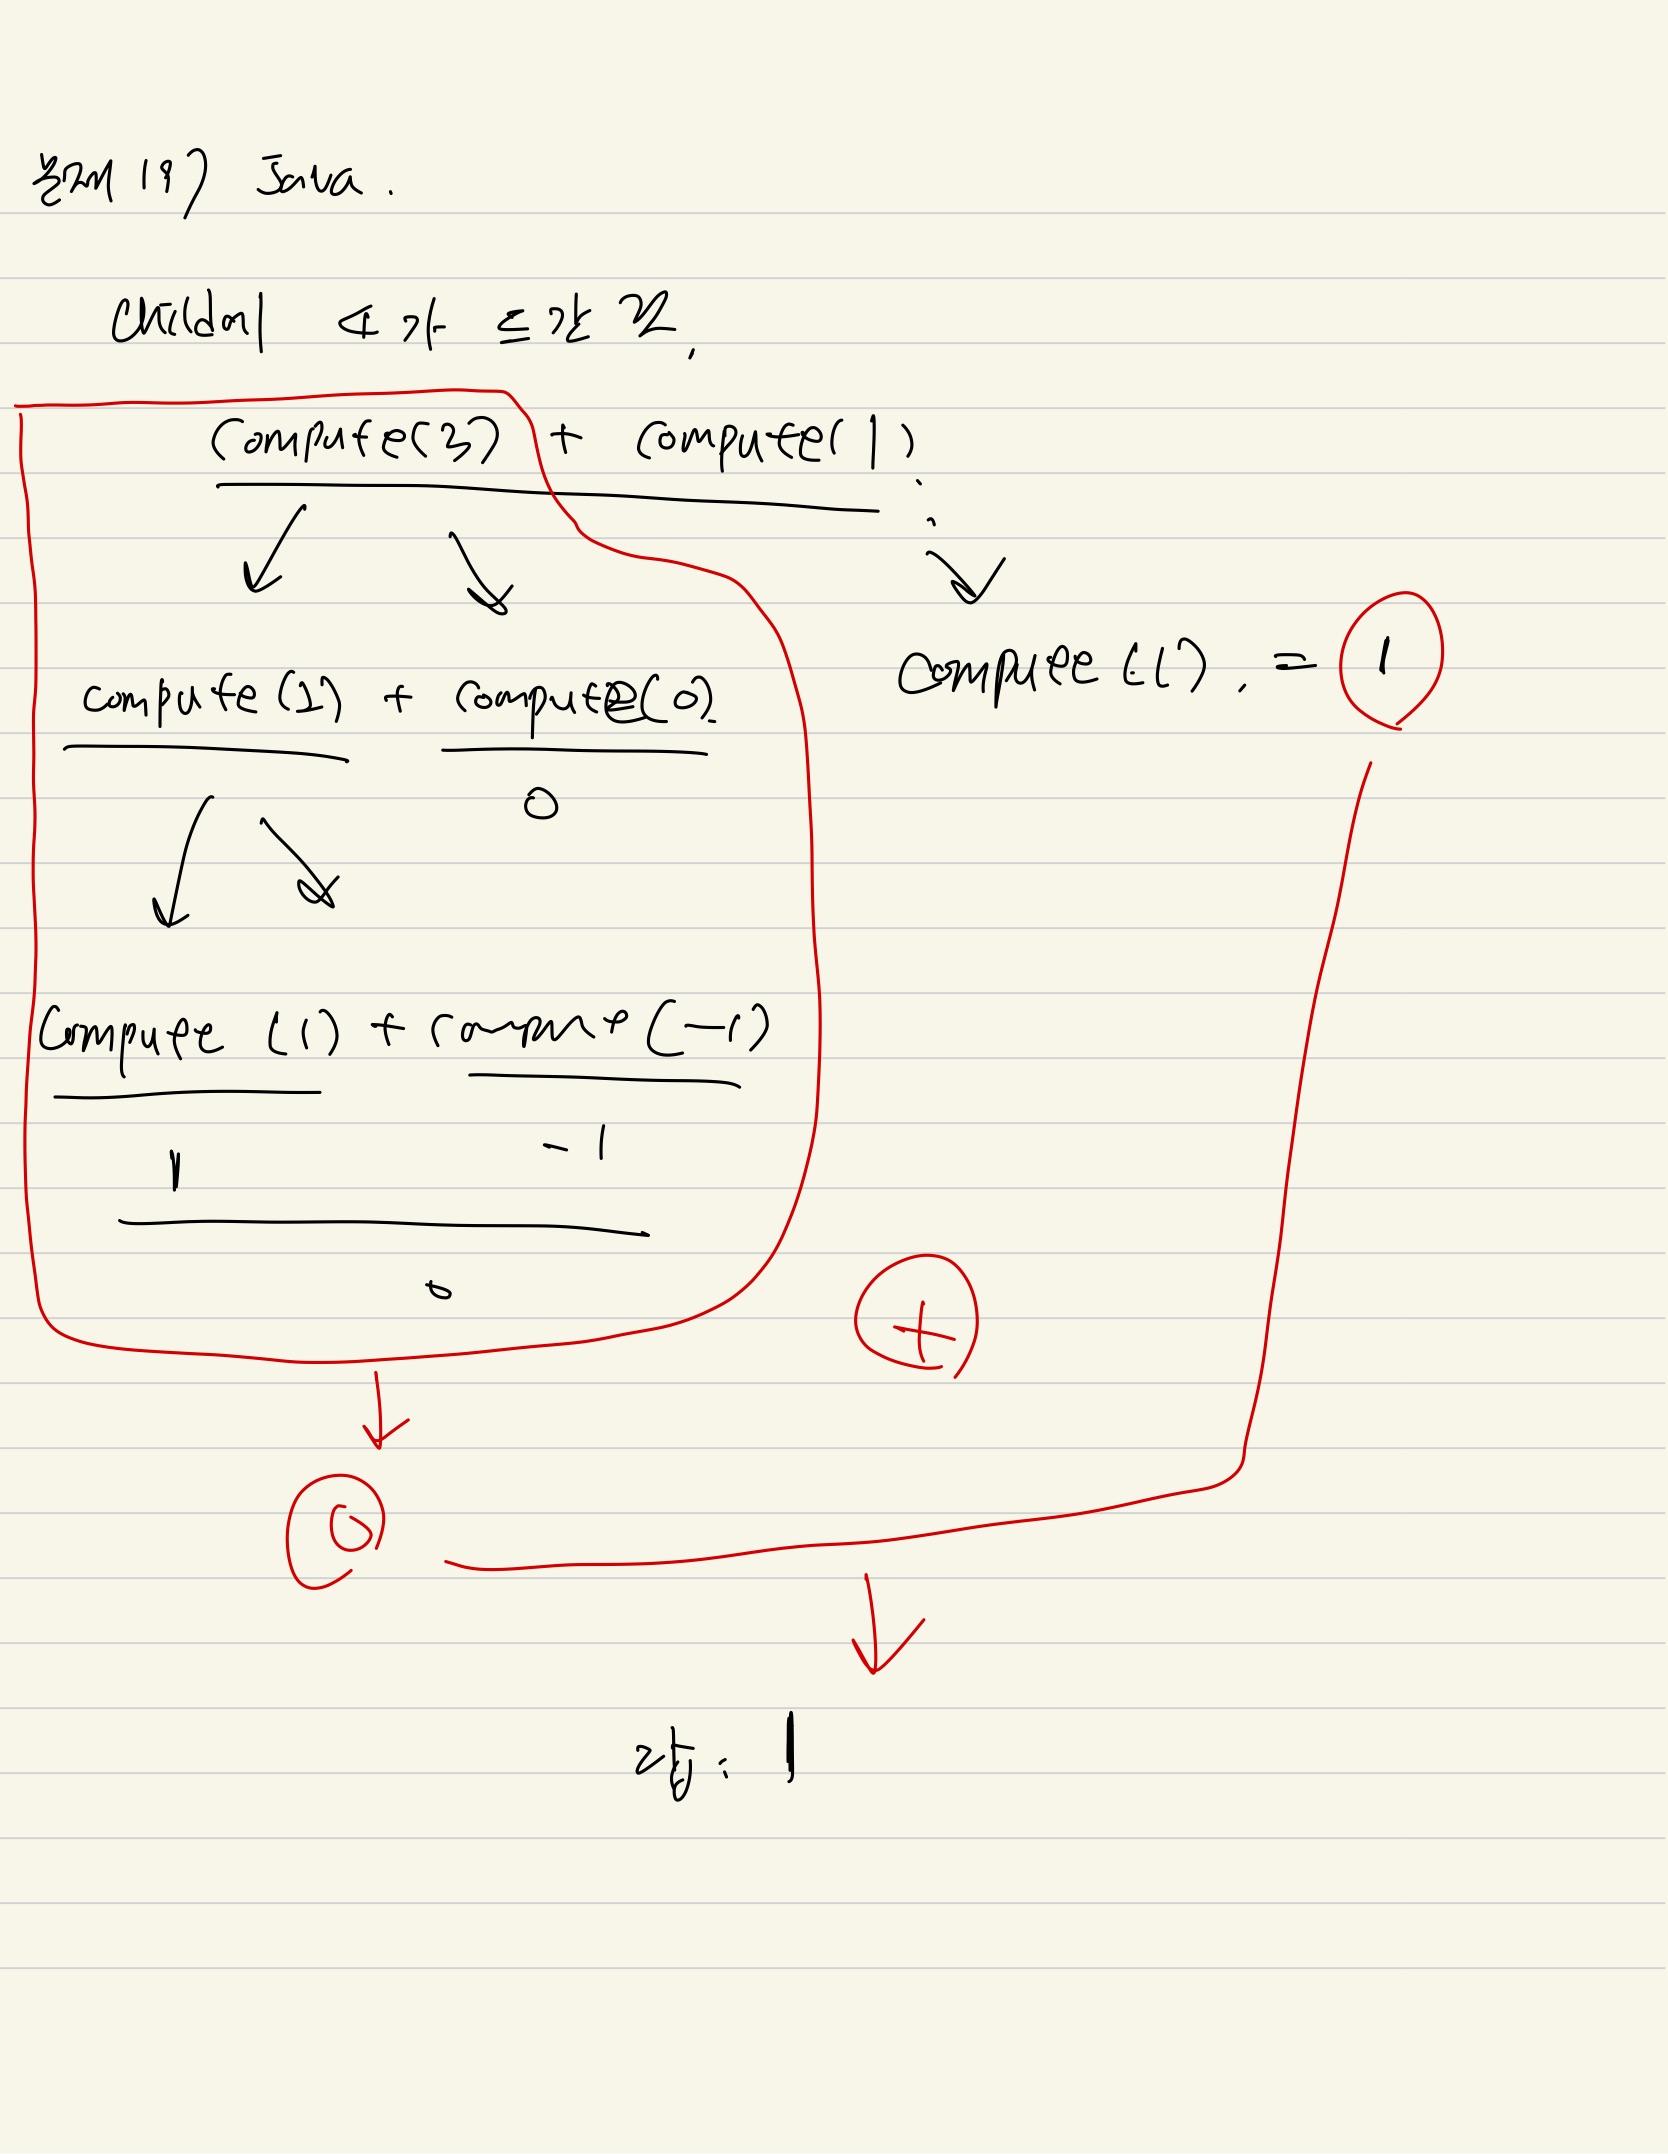 문제 18) Java.
Child에 4가 들간 것.
Compute(3) + Compute(1)
Compute(2) + Compute(0)
Compute(1). = 1
0
Compute (1) + compute (-1)
1 -1
0
+
0
정답: 1